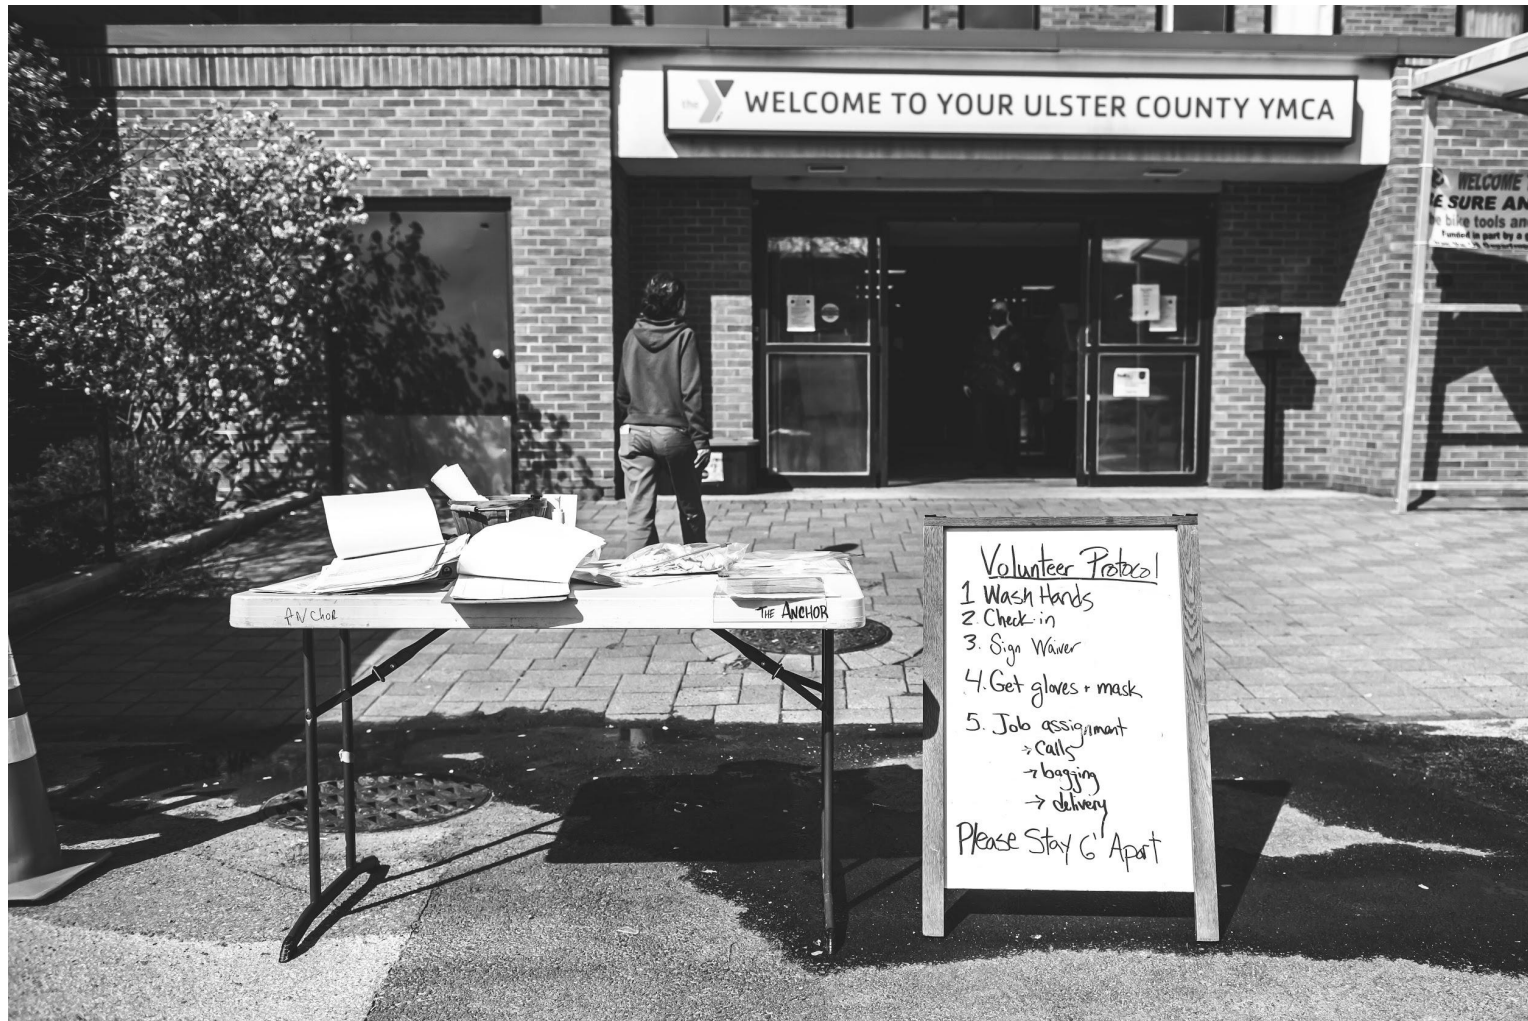 the
WELCOME TO YOUR ULSTER COUNTY YMCA
WELCOME
E SURE AN
be bike tools an
Funded in part by a
ANCHOR
THE ANCHOR
Volunteer Protocol
1 Wash Hands
2. Check-in
3. Sign Waiver
4. Get gloves + mask
5. Job assignment
→ Calls
→ bagging
→ delivery
Please Stay 6' Apart